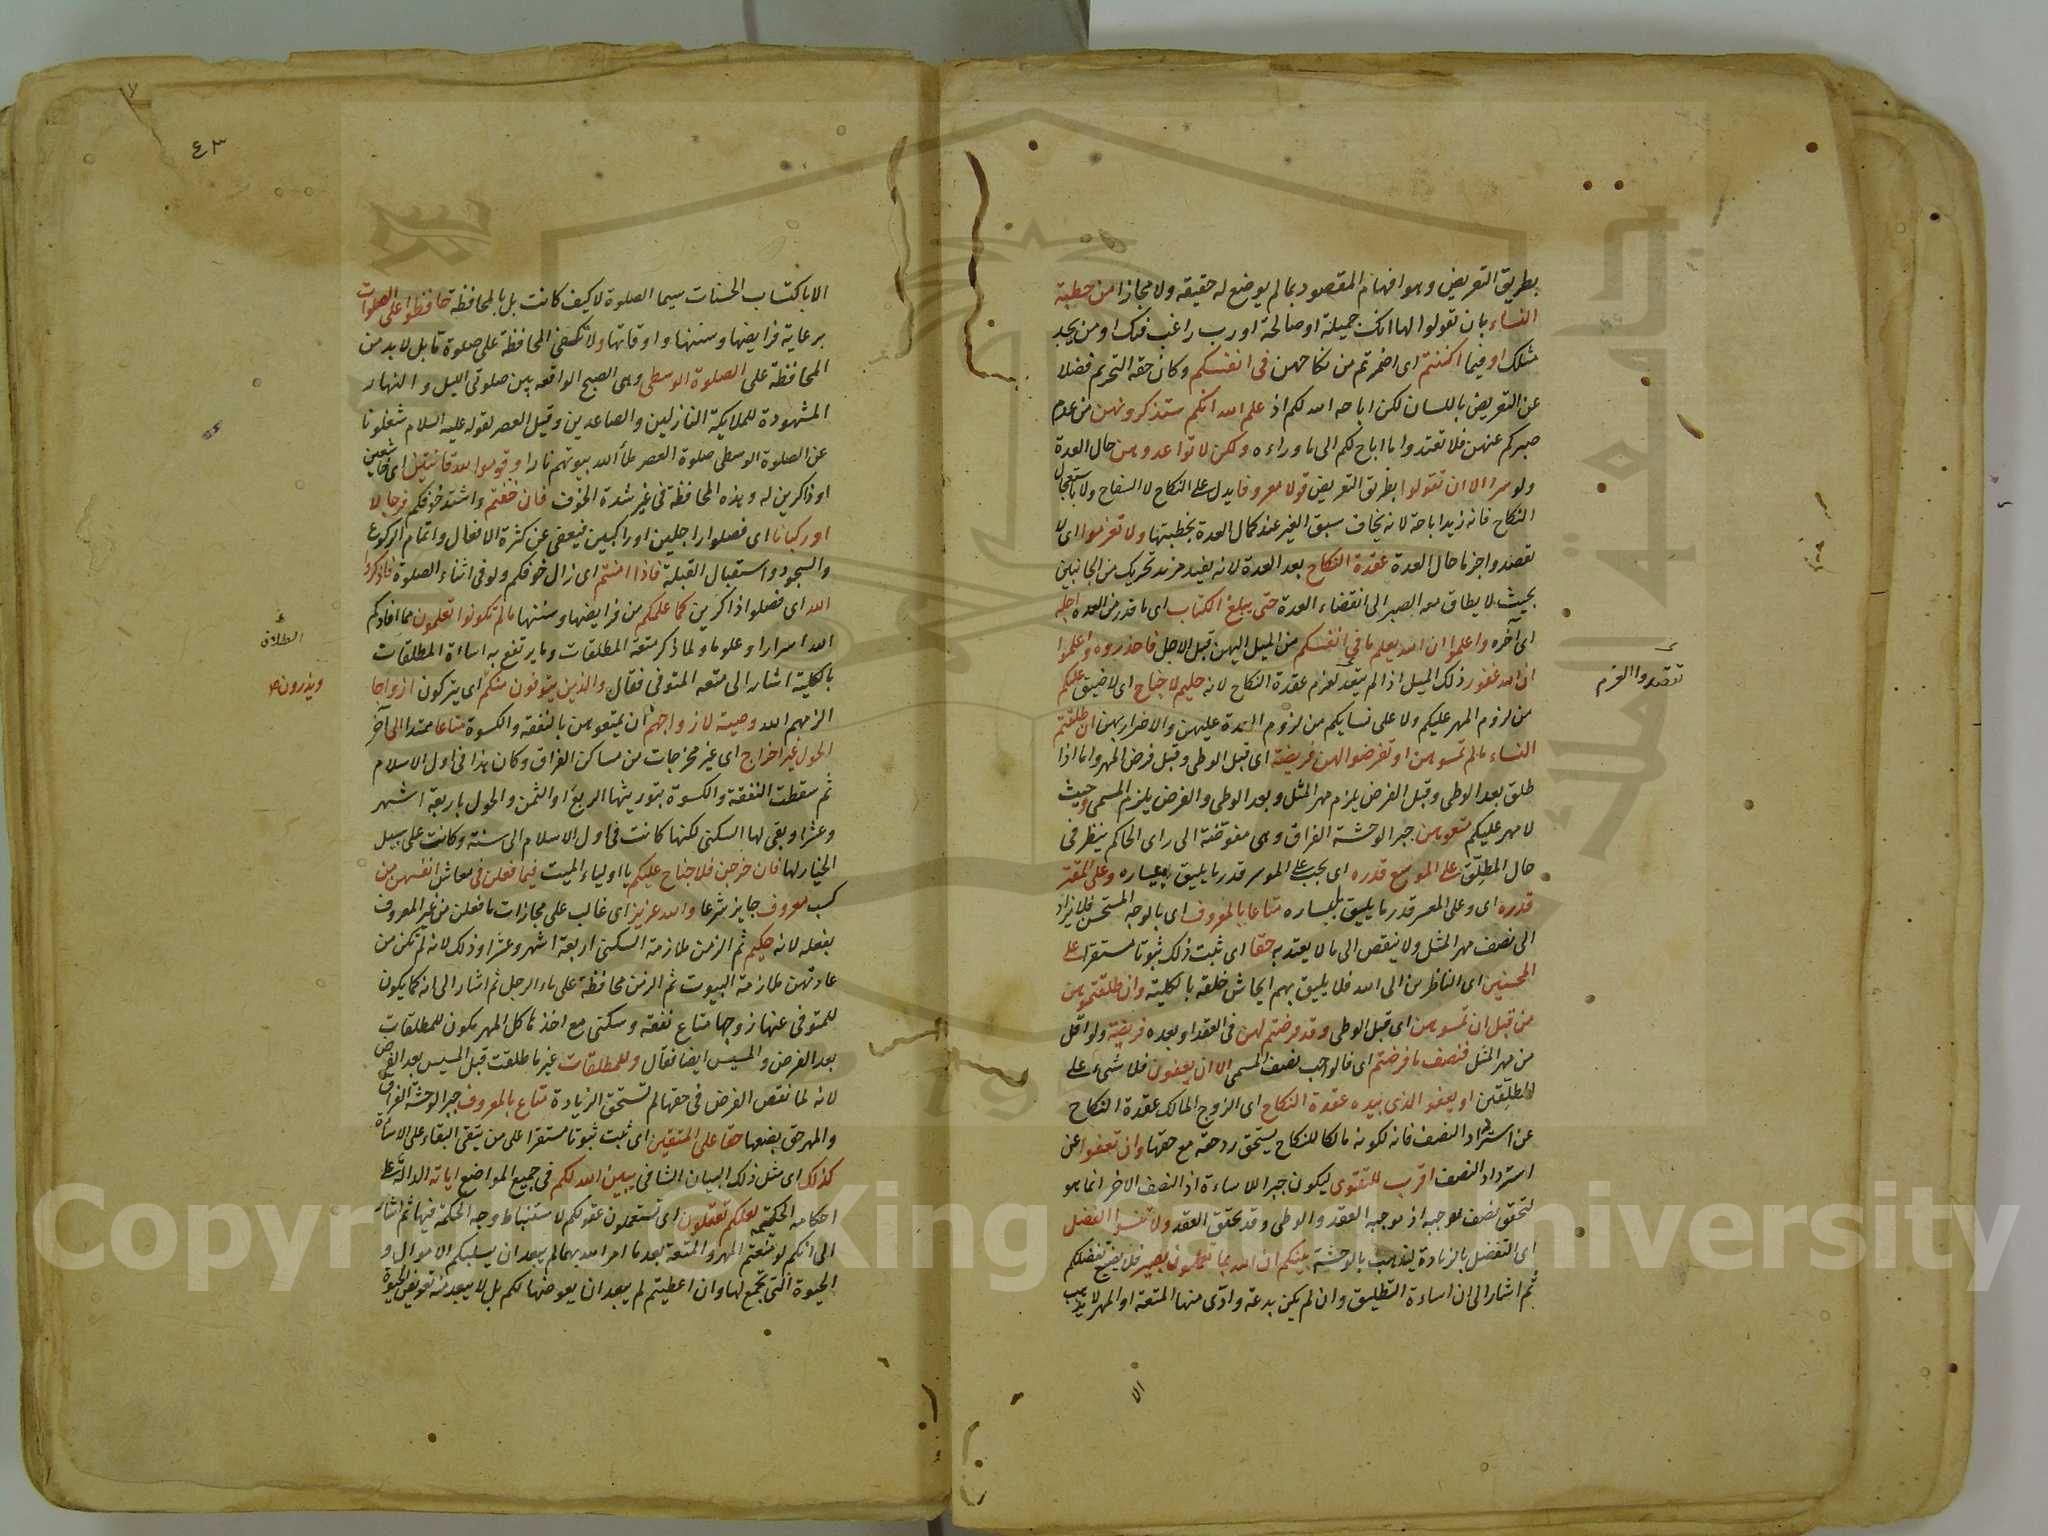 بطريق التعريض وهو افهام المقصود بما لم يوضع له حقيقه ولا مجازا من خطبة
النساء بان تقولوا لها انك جميلة او صالحة او رب راغب فيك او من يجد
مثلك او فيما اكننتم اى اضمرتم من نكاحهن فى انفسكم وكان حقه التحريم فضلا
عن التعريض باللسان لكن اباحه الله لكم اذ علم الله انكم ستذكرونهن من عدم
صبركم عنهن فلا تعتدوا ما اباح لكم الى ما وراءه ولكن لا تواعدوهن حال العدة
ولو سرا الا ان تقولوا بطريق التعريض قولا معروفا يدل على النكاح لا السفاح ولا باستعجال
النكاح فانه زيد اباحة لانه يخاف سبق الغير عند كمال العدة بخطبتها ولا تعزموا اى لا
تقصدوا جزما حال العدة عقدة النكاح بعد العدة لانه يفيد مزيد تحريك من الجانبين
بحيث لا يطاق معه الصبر الى انقضاء العدة حتى يبلغ الكتاب اى ما قدر من العدة اجله
اى آخره واعلموا ان الله يعلم ما فى انفسكم من الميل اليهن قبل الاجل فاحذروه واعلموا
ان الله غفور ذلك الميل اذ الم يتعد لعزم عقدة النكاح لانه حليم لا جناح اى لا ضيق عليكم
من لزوم المهر عليكم ولا على نسايكم من لزوم العدة عليهن والاضرار بهن ان طلقتم
النساء ما لم تمسوهن او تفرضوا لهن فريضة اى قبل الوطى وقبل فرض المهر واما اذا
طلق بعد الوطى وقبل الفرض يلزم مهر المثل وبعد الوطى والفرض يلزم المسمى وحيث
لا مهر عليكم متعوهن جبر الوحشة الفراق وهى مفوضة الى راى الحاكم ينظر فى
حال المطلق على الموسع قدره اى يجب على الموسر قدر ما يليق بيساره وعلى المقتر
قدره اى وعلى المعسر قدر ما يليق باعساره متاعا بالمعروف اى بالوجه المستحسن فلا يزاد
الى نصف مهر المثل ولا ينقص الى ما لا يعتد به حقا اى ثبت ذلك ثبوتا مستقرا على
المحسنين اى الناظرين الى الله فلا يليق بهم ايحاش خلقه بالكلية وان طلقتموهن
من قبل ان تمسوهن اى قبل الوطى وقد فرضتم لهن فى العقد او بعده فريضة ولو اقل
من مهر المثل فنصف ما فرضتم اى فالواجب نصف المسمى الا ان يعفون فلا شىء على
المطلقين او يعفو الذى بيده عقدة النكاح اى الزوج المالك عقدة النكاح
عن استرداد النصف فانه لكونه مالكا للنكاح يستحق رد حقه مع حقها وان تعفوا عن
استرداد النصف اقرب للتقوى ليكون جبر الاساءة اذ النصف الاخر انما هو
لتحقق نصف موجبه اذ موجبه العقد والوطى وقد تحقق العقد ولا تنسوا الفضل
اى التفضل بالزيادة ليذهب بالوحشة بينكم ان الله بما تعملون بصير فلا يضيع تفضلكم
ثم اشار الى ان اساءة التطليق وان لم يكن بدعة وادى منها المتعة او المهر لا يذهب
تقصدوا العزم
الا
٤٣
الا باكتساب الحسنات سيما الصلوة لا كيف كانت بل بالمحافظة حافظوا على الصلوات
برعاية فرايضها وسننها واوقاتها ولا تكفى المحافظة على صلوة ما بل لا بد من
المحافظة على الصلوة الوسطى وهى الصبح الواقعه بين صلوتى الليل والنهار
المشهودة للملايكة النازلين والصاعدين وقيل العصر لقوله عليه السلام شغلونا
عن الصلوة الوسطى صلوة العصر ملأ الله بيوتهم نارا وقوموا لله قانتين اى خاشعين
او ذاكرين له وهذه المحافظة فى غير شدة الخوف فان خفتم واشتد خوفكم فرجالا
او ركبانا اى فصلوا راجلين او راكبين فيعفى عن كثرة الافعال واتمام الركوع
والسجود واستقبال القبلة فاذا امنتم اى زال خوفكم ولو فى اثناء الصلوة فاذكروا
الله اى فصلوا ذاكرين كما علمكم من فرايضها وسننها ما لم تكونوا تعلمون مما افادكم
الله اسرارا وعلوما ولما ذكر متعة المطلقات وما يرتفع به اساءة المطلقات
بالكلية اشار الى متعه المتوفى فقال والذين يتوفون منكم اى يتركون ازواجا
الزمهم الله وصية لازواجهم ان يمتعوهن بالنفقه والكسوة متاعا ممتدا الى آخر
الحول غير اخراج اى غير مخرجات من مساكن الفراق وكان هذا فى اول الاسلام
ثم سقطت النفقة والكسوة بتوريثها الربع او الثمن والحول باربعة اشهر
وعشرا وبقى لها السكنى لكنها كانت فى اول الاسلام الى سنة وكانت على سبيل
الخيار لها فان خرجن فلا جناح عليكم يا اولياء الميت فيما فعلن فى معاش انفسهن من
كسب معروف جايز شرعا والله عزيز اى غالب على مجازات ما فعلن من غير المعروف
بفعله لانه حكيم ثم الزمن ملازمة السكنى اربعة اشهر وعشرا وذلك لانه لم تكن من
عادتهن ملازمة البيوت ثم الزمن محافظة على ماء الرجل ثم اشار الى انه كما يكون
للمتوفى عنها زوجها متاع نفقه وسكنى مع اخذ ما كل المهر يكون للمطلقات
بعد الفرض والمسيس ايضا فقال وللمطلقات غير ما طلقت قبل المسيس بعد الفرض
لانه لما نقص الفرض فى حقها لم تستحق الزيادة متاع بالمعروف جبر الوحشة الفراق
والمهر حق بضعها حقا على المتقين اى ثبت ثبوتا مستقرا على من يتقى البقاء على الاساءة
كذلك اى مثل ذلك البيان الشافى يبين الله لكم فى جميع المواضع اياته الدالة على
احكامه الحكيمة لعلكم تعقلون اى تستعملون عقولكم لاستنباط وجه الحكمة فيها ثم اشار
الى انكم لو منعتم المهر والمتعة بعد ما امر الله بهما لم يبعد ان يسلبكم الاموال و
الحيوة التى تجمع لها وان اعطيتم لم يبعد ان يعوضها لكم بل لا يبعد منه تعويض الحيوة
الطلاق
ويذرون
Copyright © King Saud University